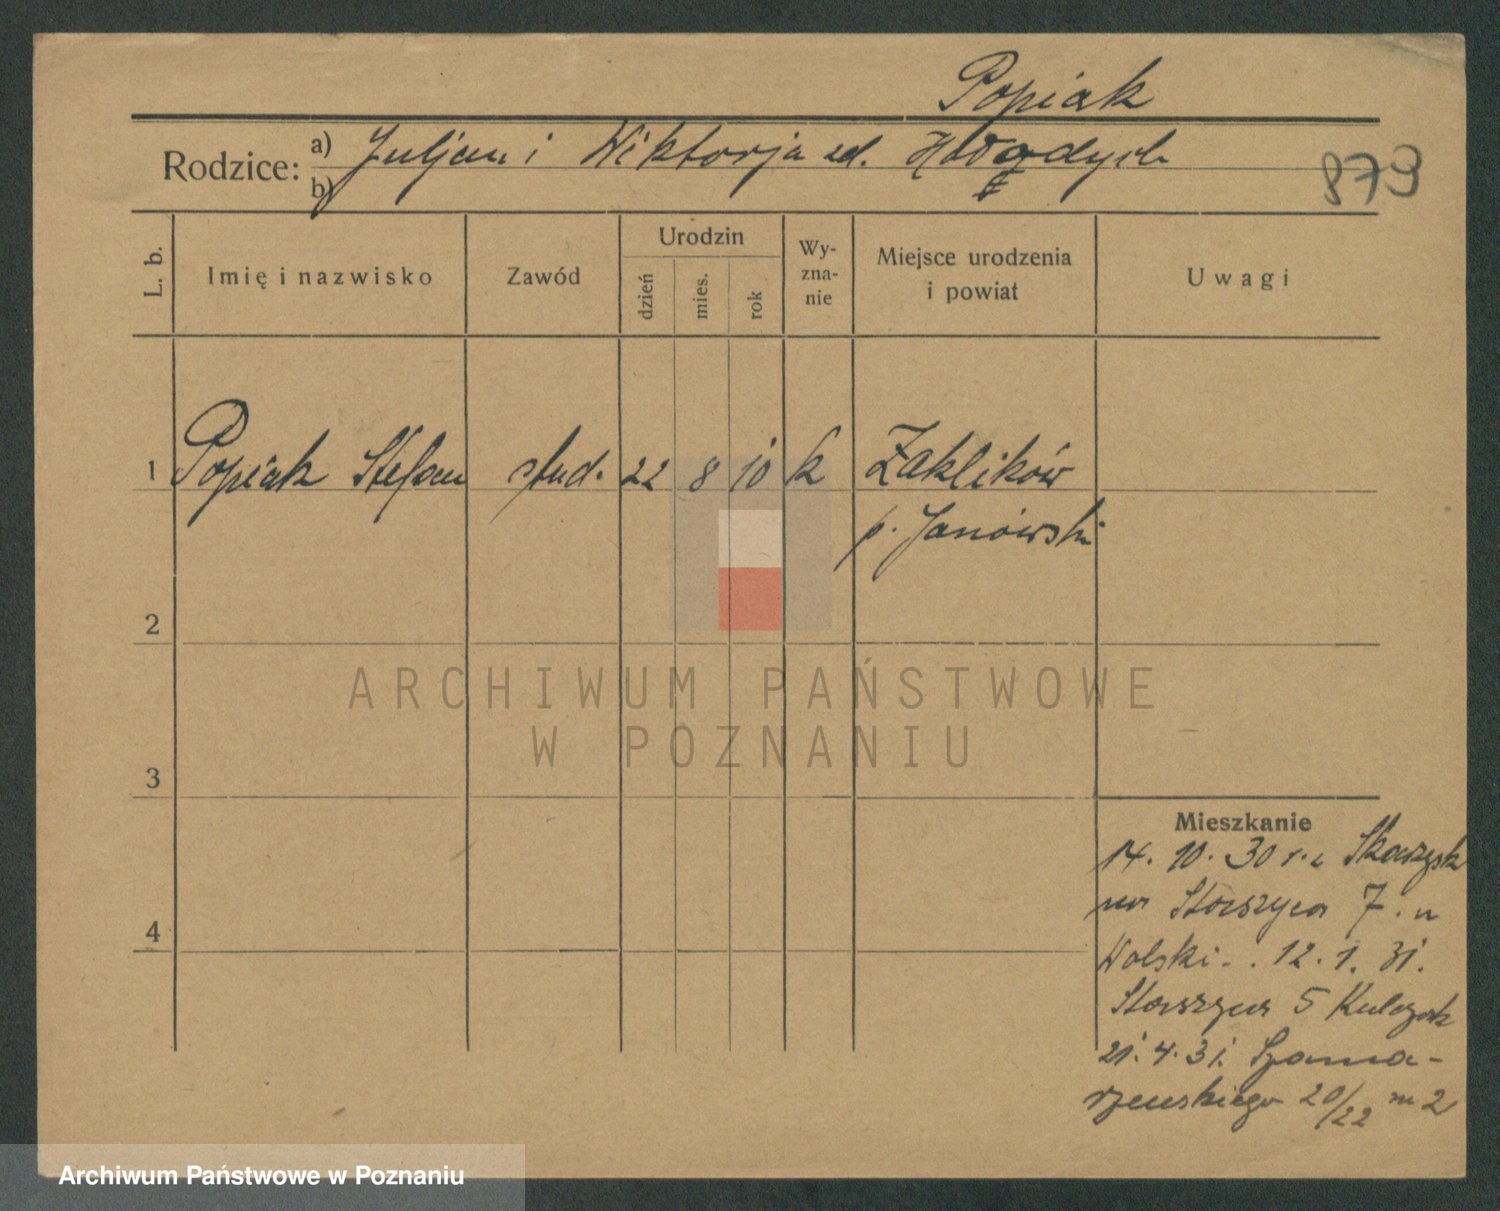 Popiak
Rodzice: a) Juljan i Wiktorja zd.
b)
879
L. b.
Imię i nazwisko
Zawód
Urodzin
dzień
mies.
rok
Wy-
zna-
nie
Miejsce urodzenia
i powiat
Uwagi
1 Popiak Stefan stud. 22 8 10 k Zaklików
p. Janowski
2
ARCHIWUM PAŃSTWOWE
W POZNANIU
3
Mieszkanie
14. 10. 30 r. z Skarżysk
na Starszyca 7. u
4
Wolski - . 12. 1. 31.
5 Kulczak
21. 4. 31. Szama-
rzewskiego 20/22 m 2
Archiwum Państwowe w Poznaniu